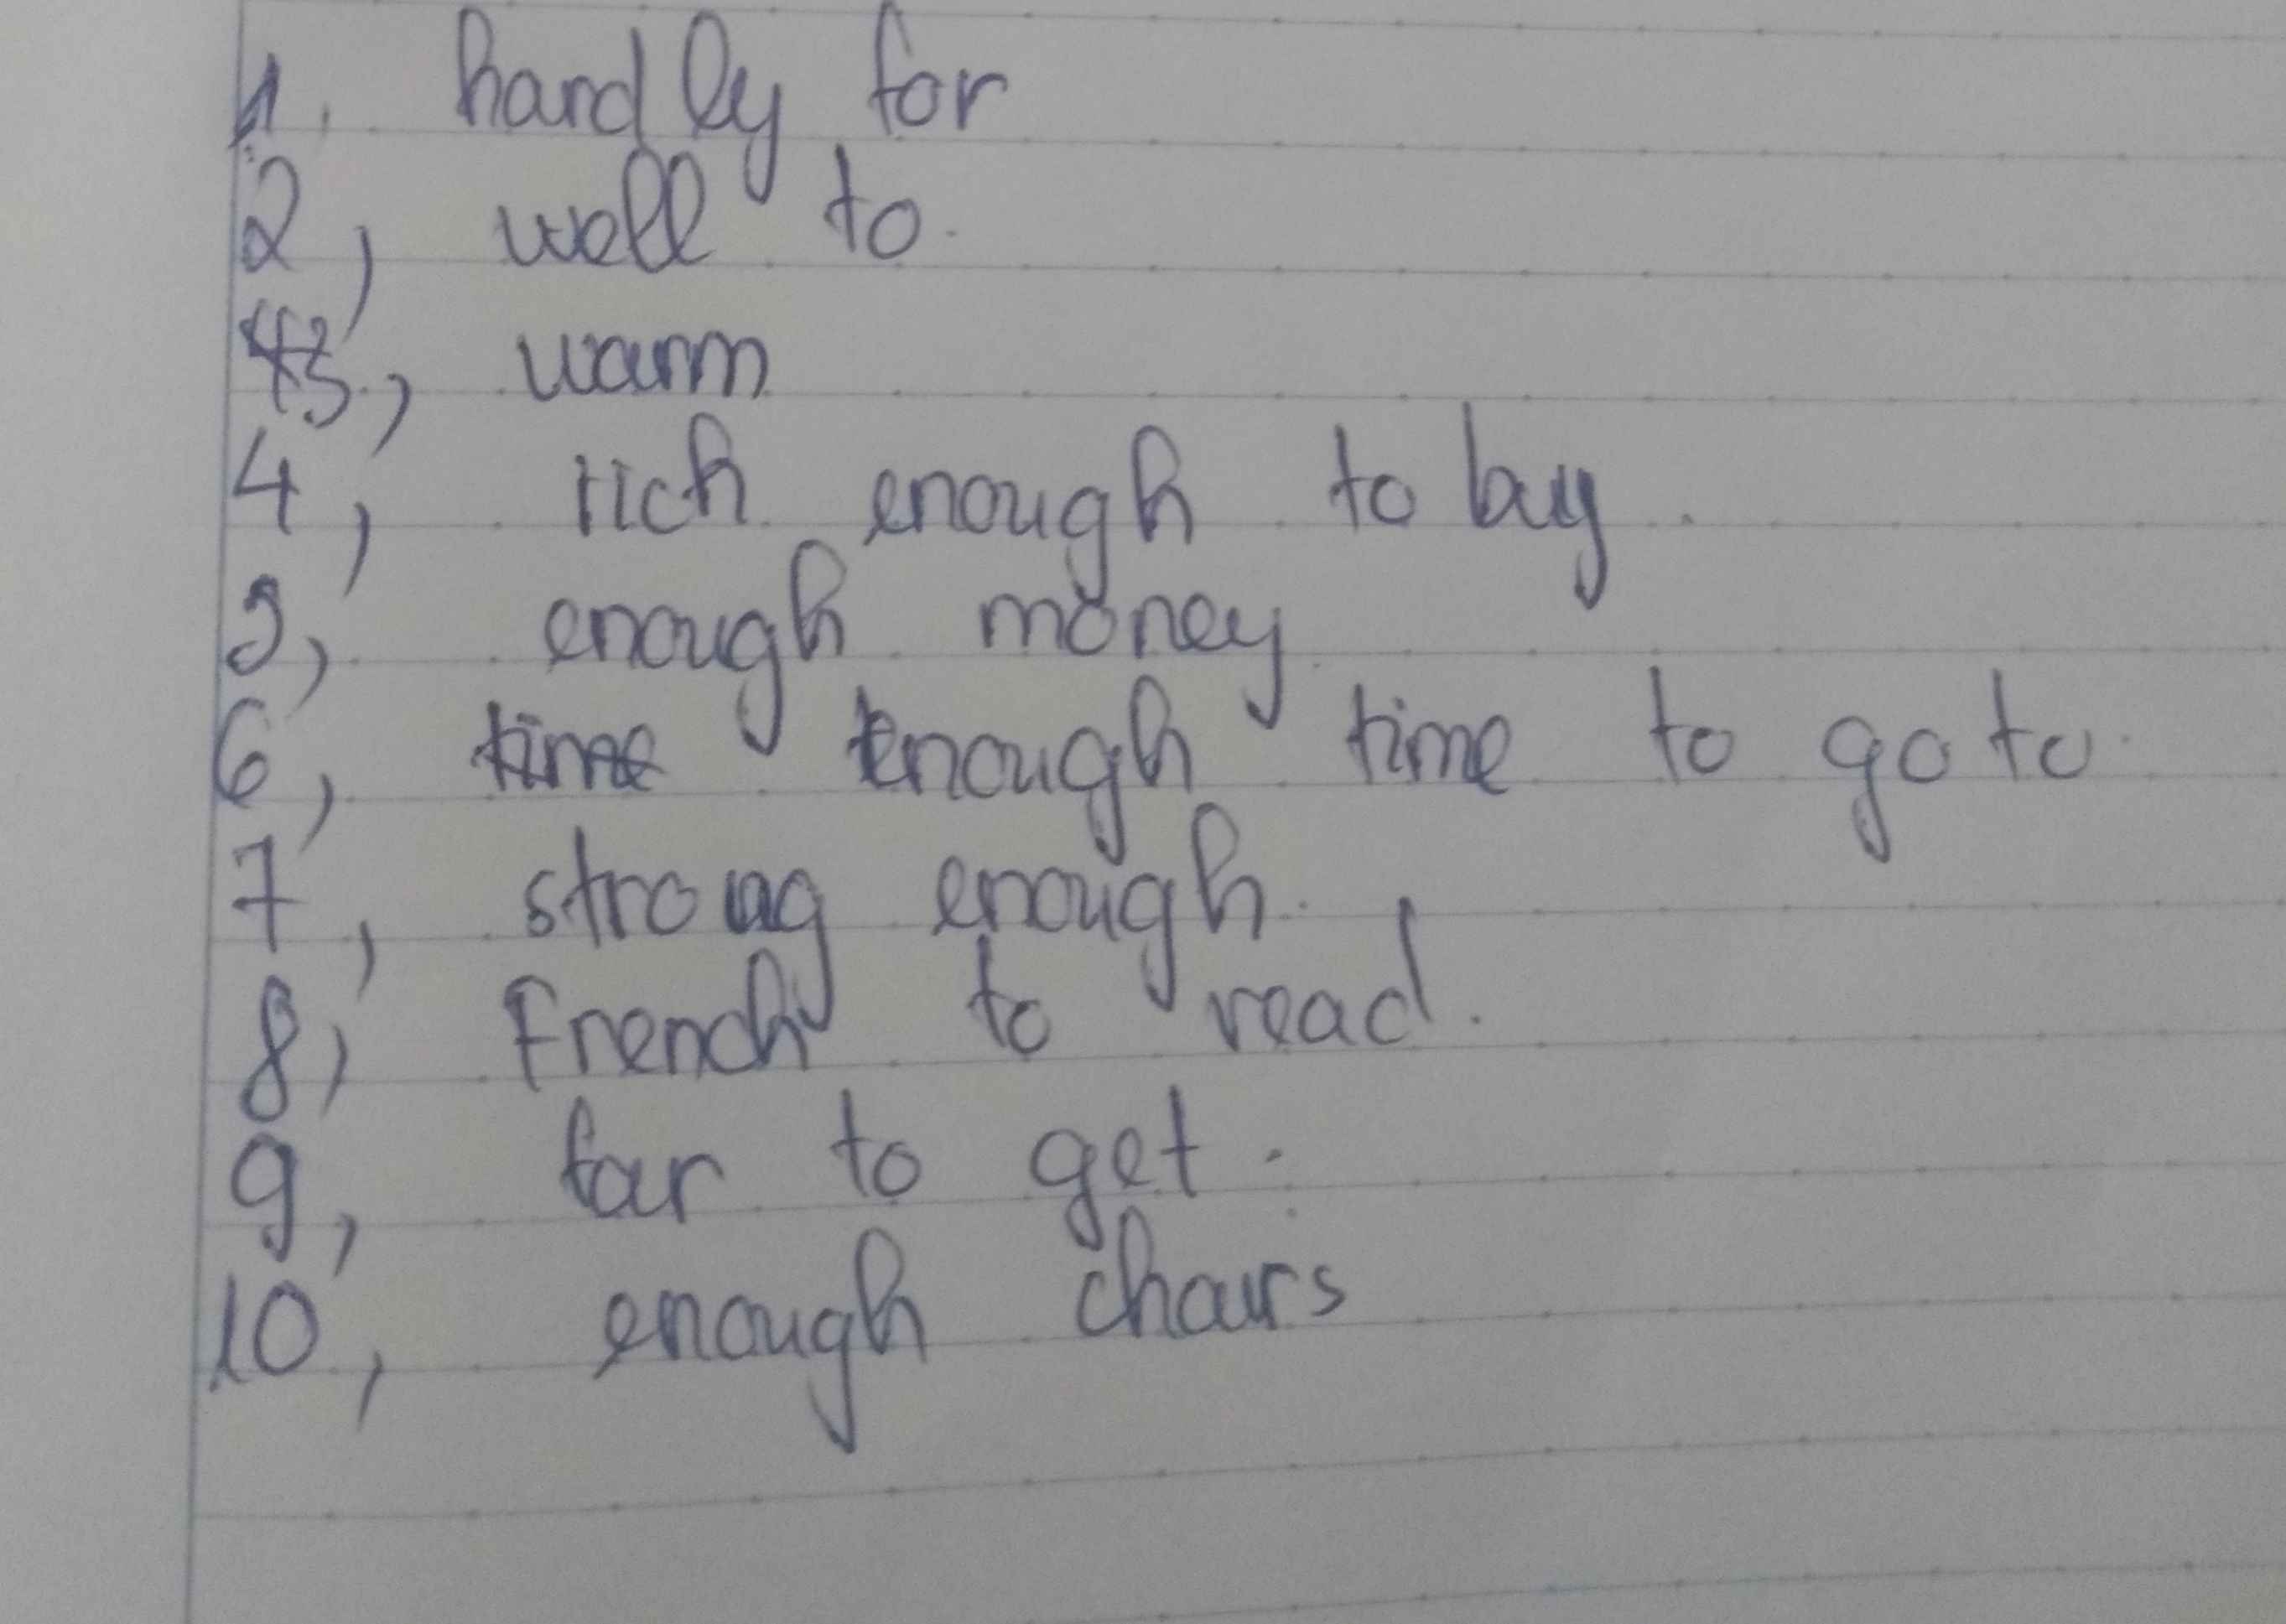 1. hardly for
2, well to.
3, warm
4, rich enough to buy.
5, enough money
6, time enough time to go to.
7, strong enough.
8, French to read.
9, far to get.
10, enough chairs